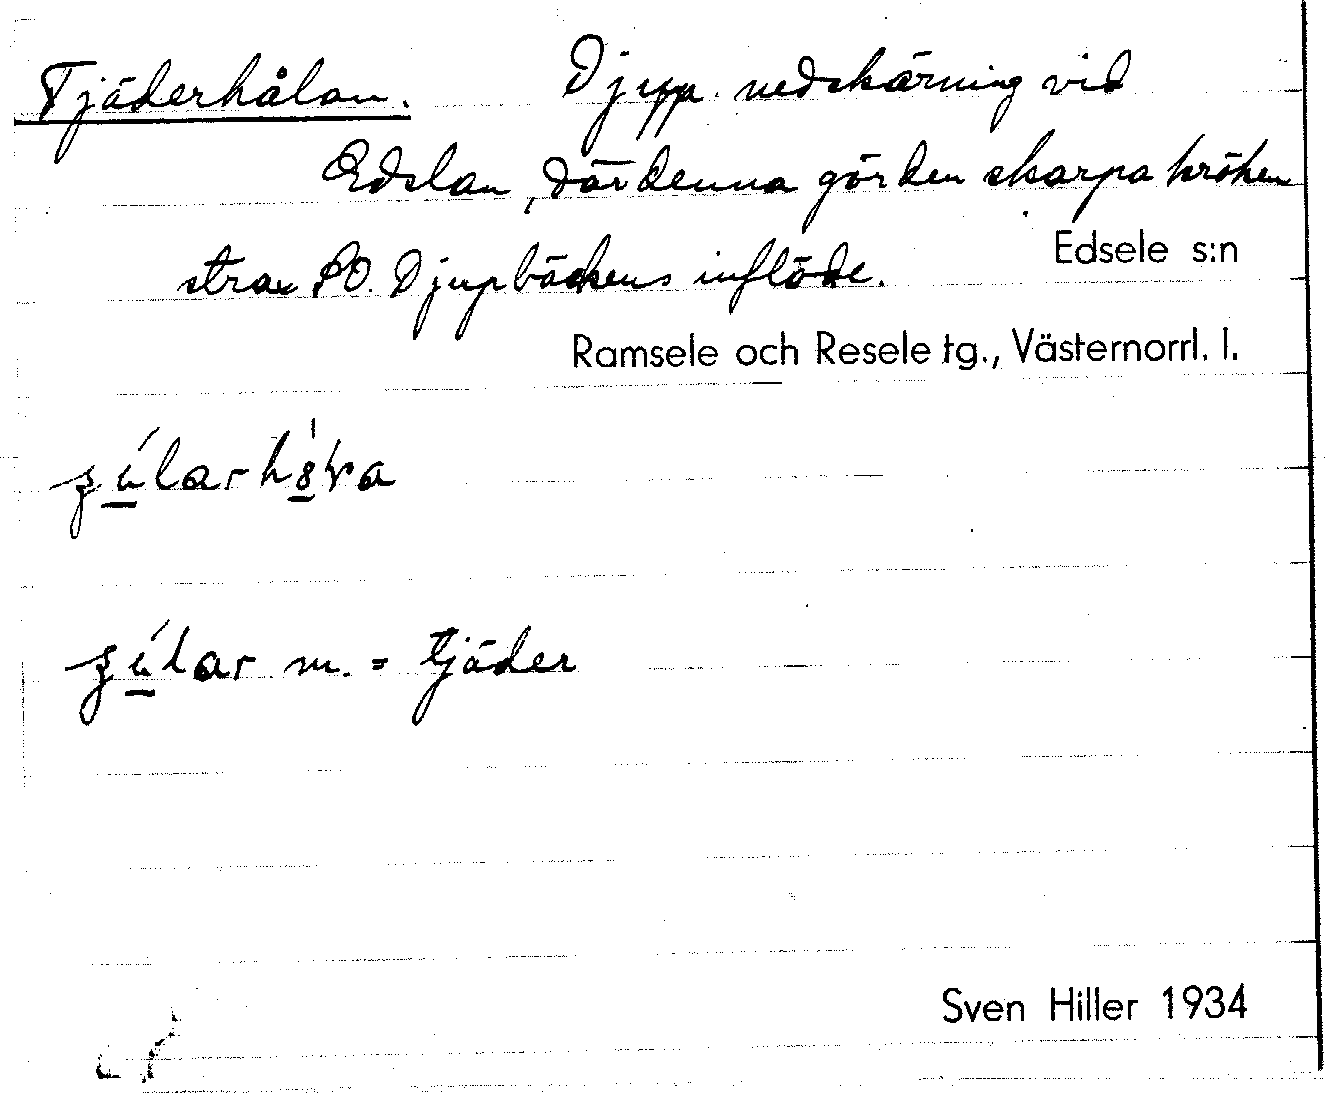 Tjäderhålan. Djup nedskärning vid
Edslan, där denna gör den skarpa kröken
strax SO. Djupbäckens inflöde.
Edsele s:n
Ramsele och Resele tg., Västernorrl. l.
m. = tjäder
Sven Hiller 1934